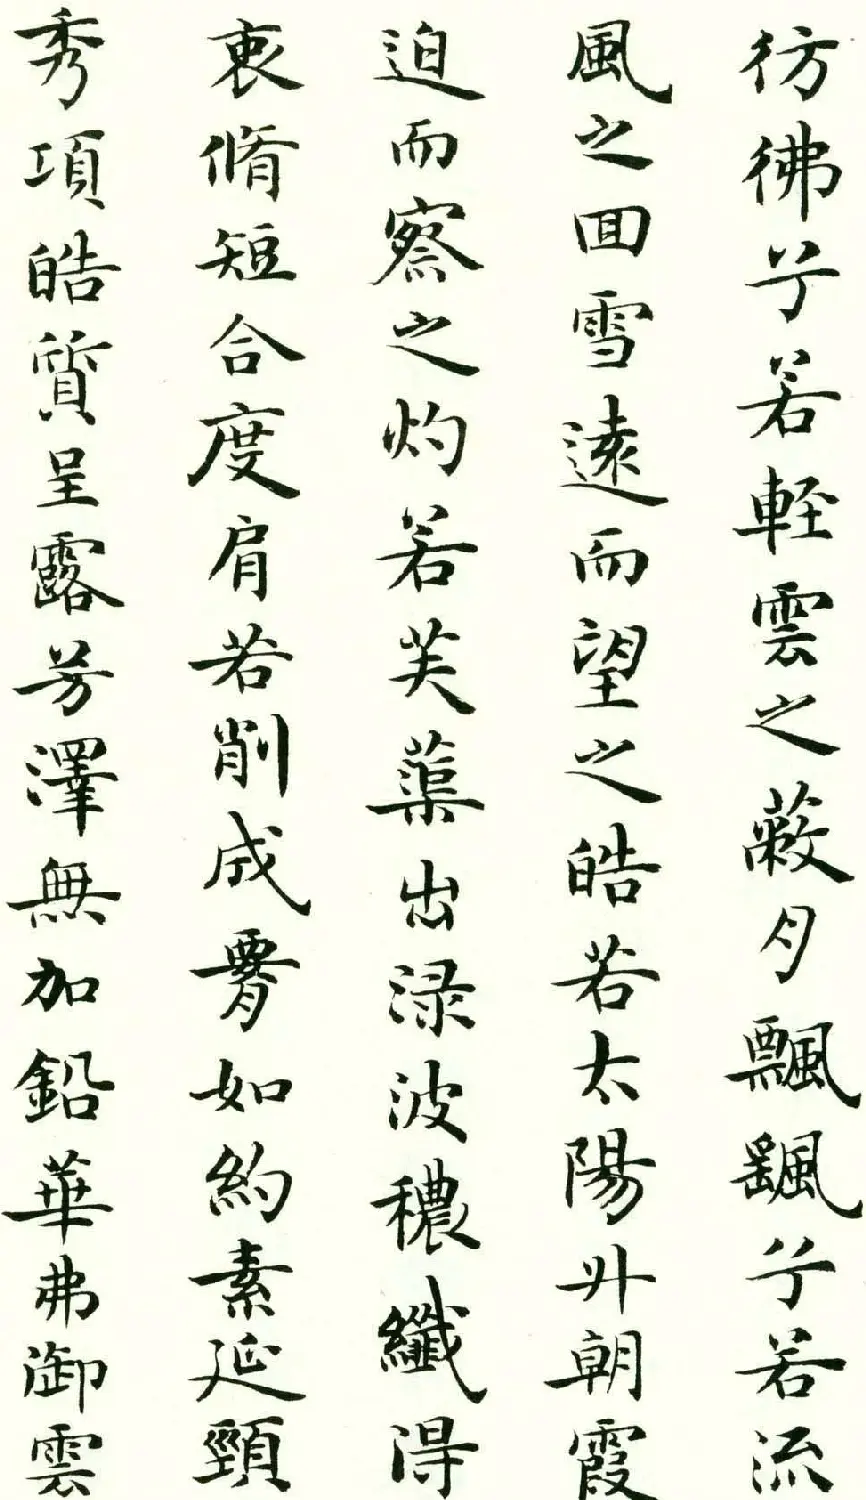 彷彿兮若軽雲之蔽月飄颻兮若流
風之回雪遠而望之皓若太陽升朝霞
迫而察之灼若芙蕖出渌波穠纖得
衷脩短合度肩若削成署如約素延頸
秀項皓質呈露芳澤無加鉛華弗御雲